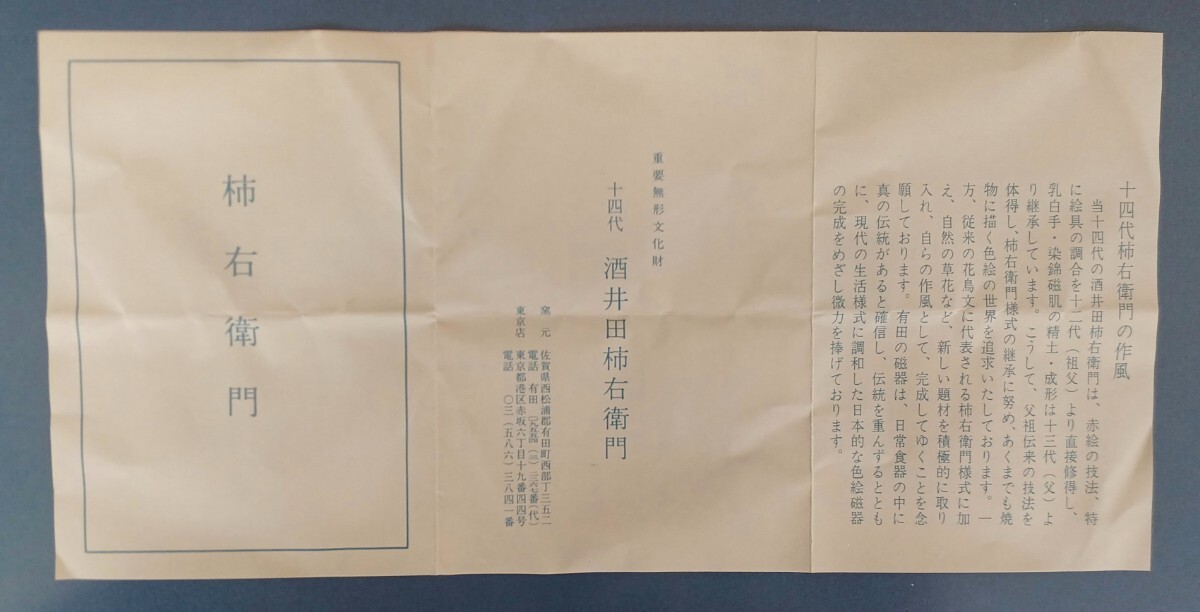 十四代柿右衛門の作風
当十四代の酒井田柿右衛門は、赤絵の技法、特
に絵具の調合を十二代（祖父）より直接修得し、
乳白手・染錦磁肌の精土・成形は十三代（父）よ
り継承しています。こうして、父祖伝来の技法を
体得し、柿右衛門様式の継承に努め、あくまでも焼
物に描く色絵の世界を追求いたしております。一
方、従来の花鳥文に代表される柿右衛門様式に加
え、自然の草花など、新しい題材を積極的に取り
入れ、自らの作風として、完成してゆくことを念
願しております。有田の磁器は、日常食器の中に
真の伝統があると確信し、伝統を重んずるととも
に、現代の生活様式に調和した日本的な色絵磁器
の完成をめざし微力を捧げております。
重要無形文化財
十四代 酒井田柿右衛門
窯元 佐賀県西松浦郡有田町西部丁三五二
電話 有田
東京店 東京都港区赤坂六丁目十九番四四号
電話 〇三（五八六）三八四一番
柿右衛門